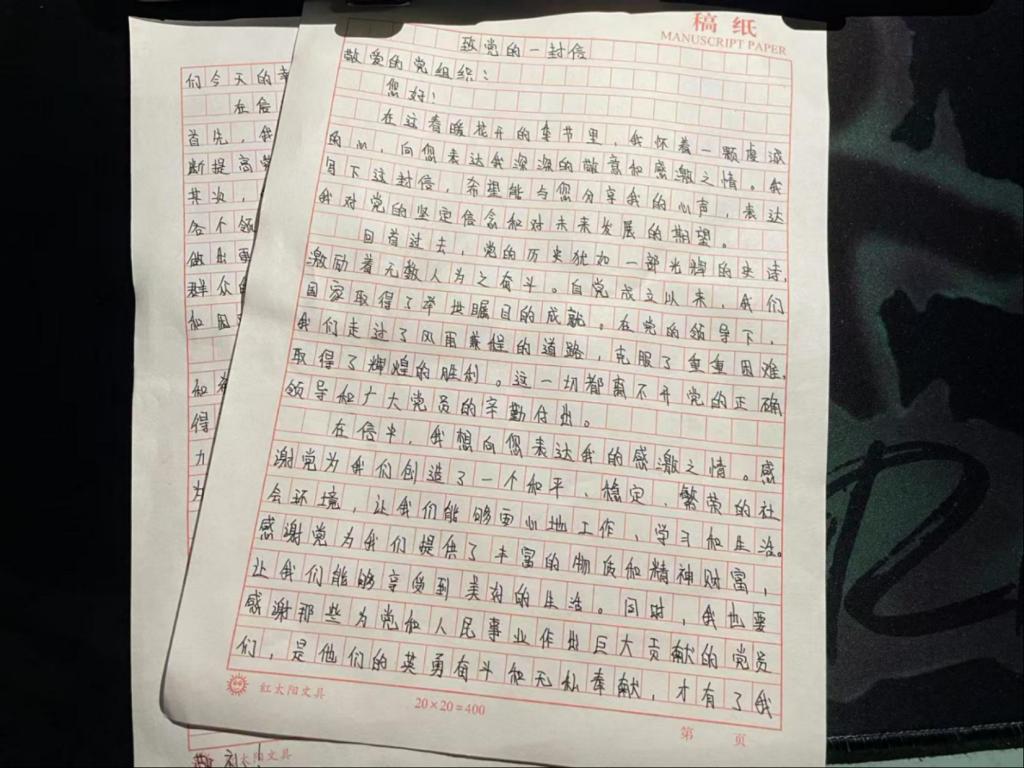 稿纸
MANUSCRIPT PAPER
致党的一封信
敬爱的党组织：
您好！
在这春暖花开的季节里，我怀着一颗虔诚
的心，向您表达我深深的敬意和感激之情。我
写下这封信，希望能与您分享我的心声，表达
我对党的坚定信念和对未来发展的期望。
回首过去，党的历史犹如一部光辉的史诗，
激励着无数人为之奋斗。自党成立以来，我们
国家取得了举世瞩目的成就。在党的领导下，
我们走过了风雨兼程的道路，克服了重重困难，
取得了辉煌的胜利。这一切都离不开党的正确
领导和广大党员的辛勤付出。
在信中，我想向您表达我的感激之情。感
谢党为我们创造了一个和平、稳定、繁荣的社
会环境，让我们能够安心地工作、学习和生活。
感谢党为我们提供了丰富的物质和精神财富，
让我们能够享受到美好的生活。同时，我也要
感谢那些为党和人民事业作出巨大贡献的党员
们，是他们的英勇奋斗和无私奉献，才有了我
红太阳文具
20×20=400
第 页
们今天的幸
在信
首先，我
断提高
其次，
各个领
做出更
群众的
和困
和
得
力
为
敬礼！
太阳文具